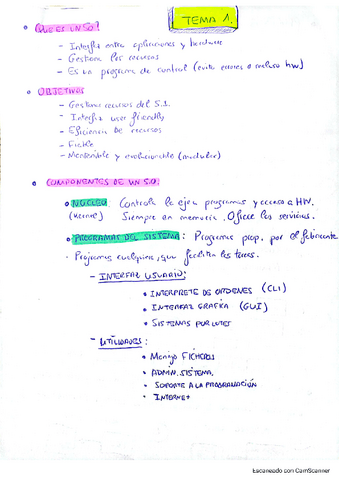 TEMA 1.
• QUE ES UN SO?
- Interfaz entre aplicaciones y hardware
- Gestiona los recursos
- Es un programa de control (evita errores o mal uso HW)
• OBJETIVOS
- Gestionar recursos del S.I.
- Interfaz user friendly
- Eficiencia de recursos
- Fiable
- Mantenible y evolucionable (modular)
• COMPONENTES DE UN S.O.
• NÚCLEO Controla la ejec programas y acceso a HW.
(Kernel) Siempre en memoria. Ofrece los servicios.
• PROGRAMAS DEL SISTEMA: Programas prop. por el fabricante
· Programas cualquiera, que facilitan las tareas.
- INTERFAZ USUARIO:
• INTERPRETE DE ORDENES (CLI)
• INTERFAZ GRAFICA (GUI)
• SISTEMAS POR LOTES
- UTILIDADES:
• Manejo FICHEROS
• ADMN. SISTEMA.
• SOPORTE A LA PROGRAMACIÓN
• INTERNET
Escaneado con CamScanner